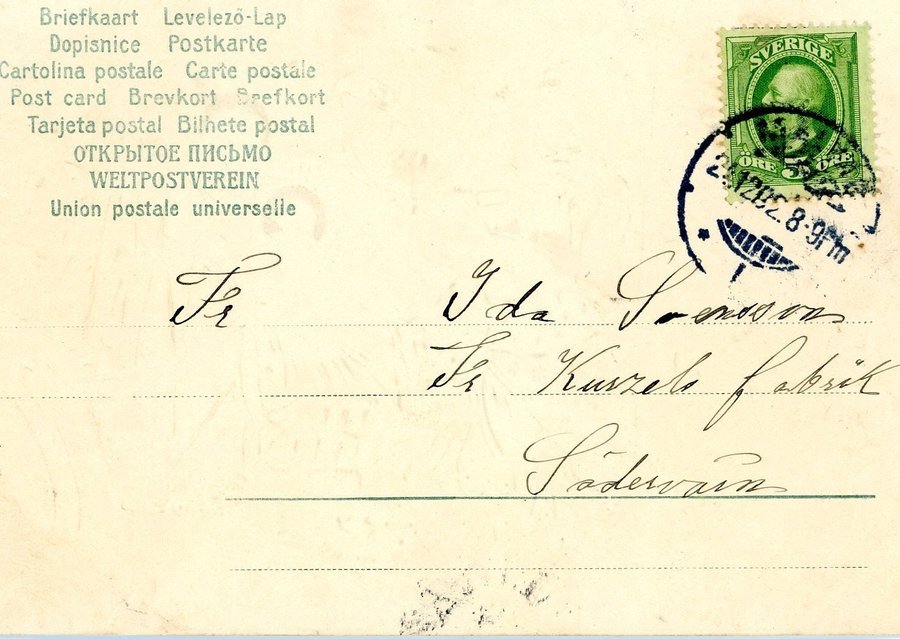 Briefkaart Levelező-Lap
Dopisnice Postkarte
Cartolina postale Carte postale
Post card Brevkort Brefkort
Tarjeta postal Bilhete postal
ОТКРЫТОЕ ПИСЬМО
WELTPOSTVEREIN
Union postale universelle
SVERIGE
ÖRE 5 ÖRE
12 02. 8-9 Fm
Fr Ida Svensson
Fr Kurzels fabrik
Södervärn